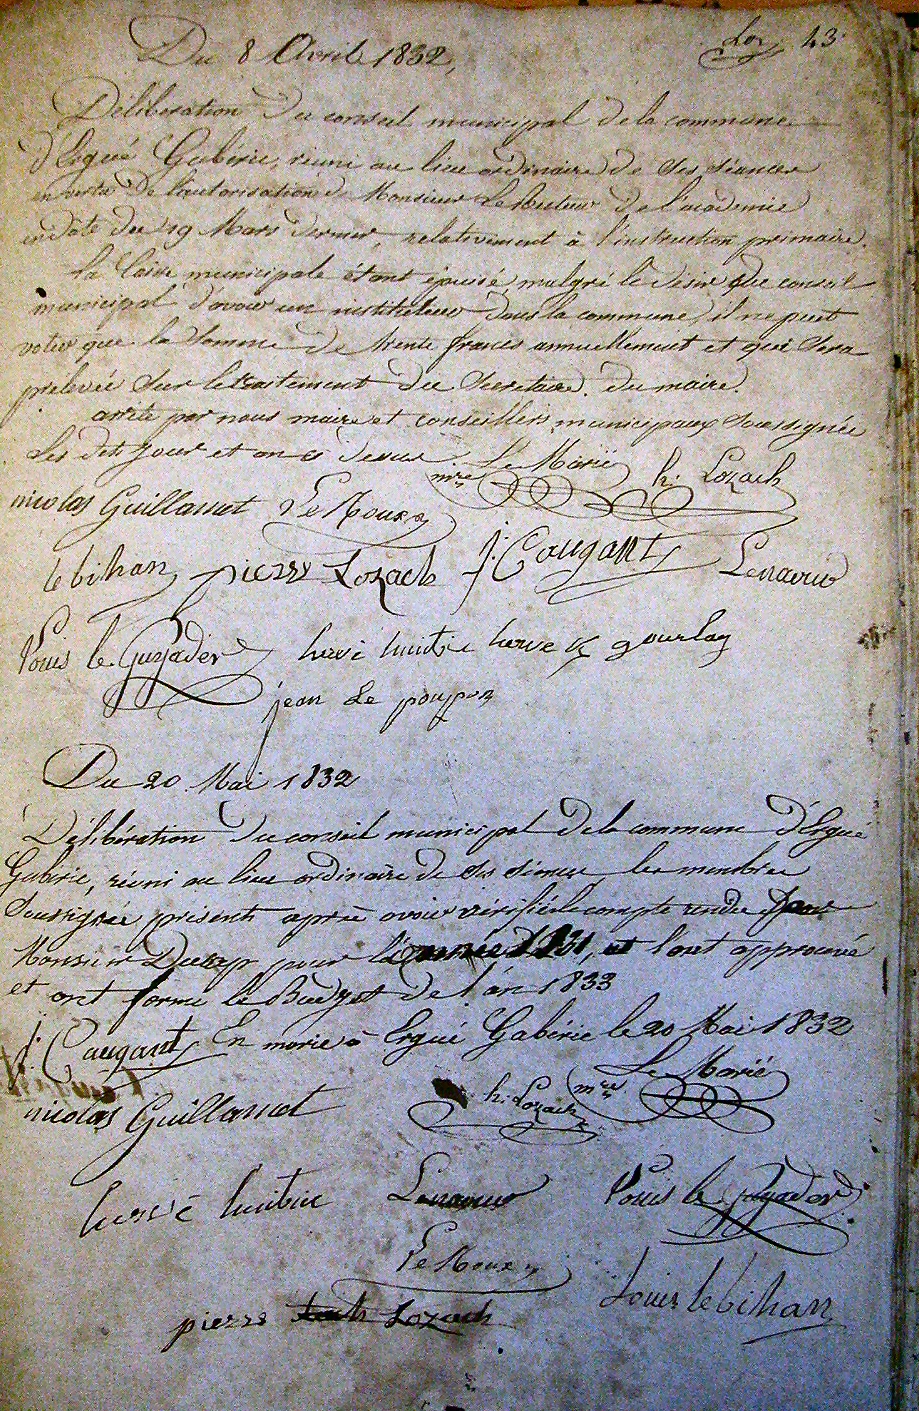 43
Du 8 Avril 1832,
Délibération du conseil municipal de la commune
d'Ergué Gabéric, réuni au lieu ordinaire de ses séances
en vertu de l'autorisation de Monsieur Le Recteur de l'académie
en date du 19 Mars dernier, relativement à l'instruction primaire.
La Caisse municipale étant épuisé malgré le désir du conseil
municipal d'avoir un instituteur dans la commune, il ne peut
voter que la somme de trente francs annuellement et qui sera
prelevée sur le traitement du Secretaire du maire.
arrêté par nous maire et conseillers municipaux soussignés
Les dits jour et an ci dessus
mre Le Marié h: Lozach
nicolas Guillamet Le Roux
le bihan pierre Lozach J: Caugant Lenaour
Louis le Guyader hervé huitric herve gourlay
jean Le poupon
Du 20 Mai 1832
Délibération du conseil municipal de la commune d'Ergué
Gabéric, réuni au lieu ordinaire de ses séances les membres
soussignés présents après avoir vérifié le compte rendu par
Monsieur pour l'année 1831, et l'ont approuvé
et ont formé le Budget de l'an 1833
En mairie à Ergué Gabéric le 20 Mai 1832
J: Caugant Le Marié
mre
nicolas Guillamet h: Lozach
hervé huitric Lenaour Louis le Guyader
Le Roux
pierre Lozach Louis le bihan